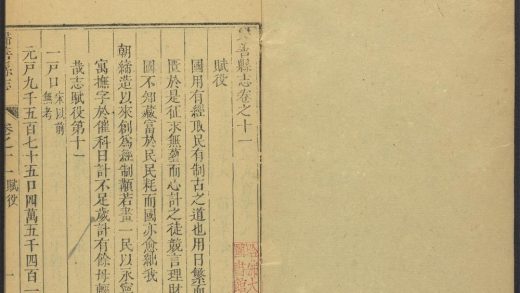 善縣志卷之十一
賦役
國用有經取民有制古之道也用日繁而
匱於是征求無藝而心計之徒競言理財
國不知藏富於民民耗而國亦愈絀我
朝締造以來創為經制顓若畫一民以永寧
寓撫字於催科日計不足歲計有餘毋輕
哉志賦役第十一
一戶口 宋以前無考
元戶九千五百七十五口四萬五千四百一
善縣志 卷之十一 賦役 一
哈佛大
圖書館